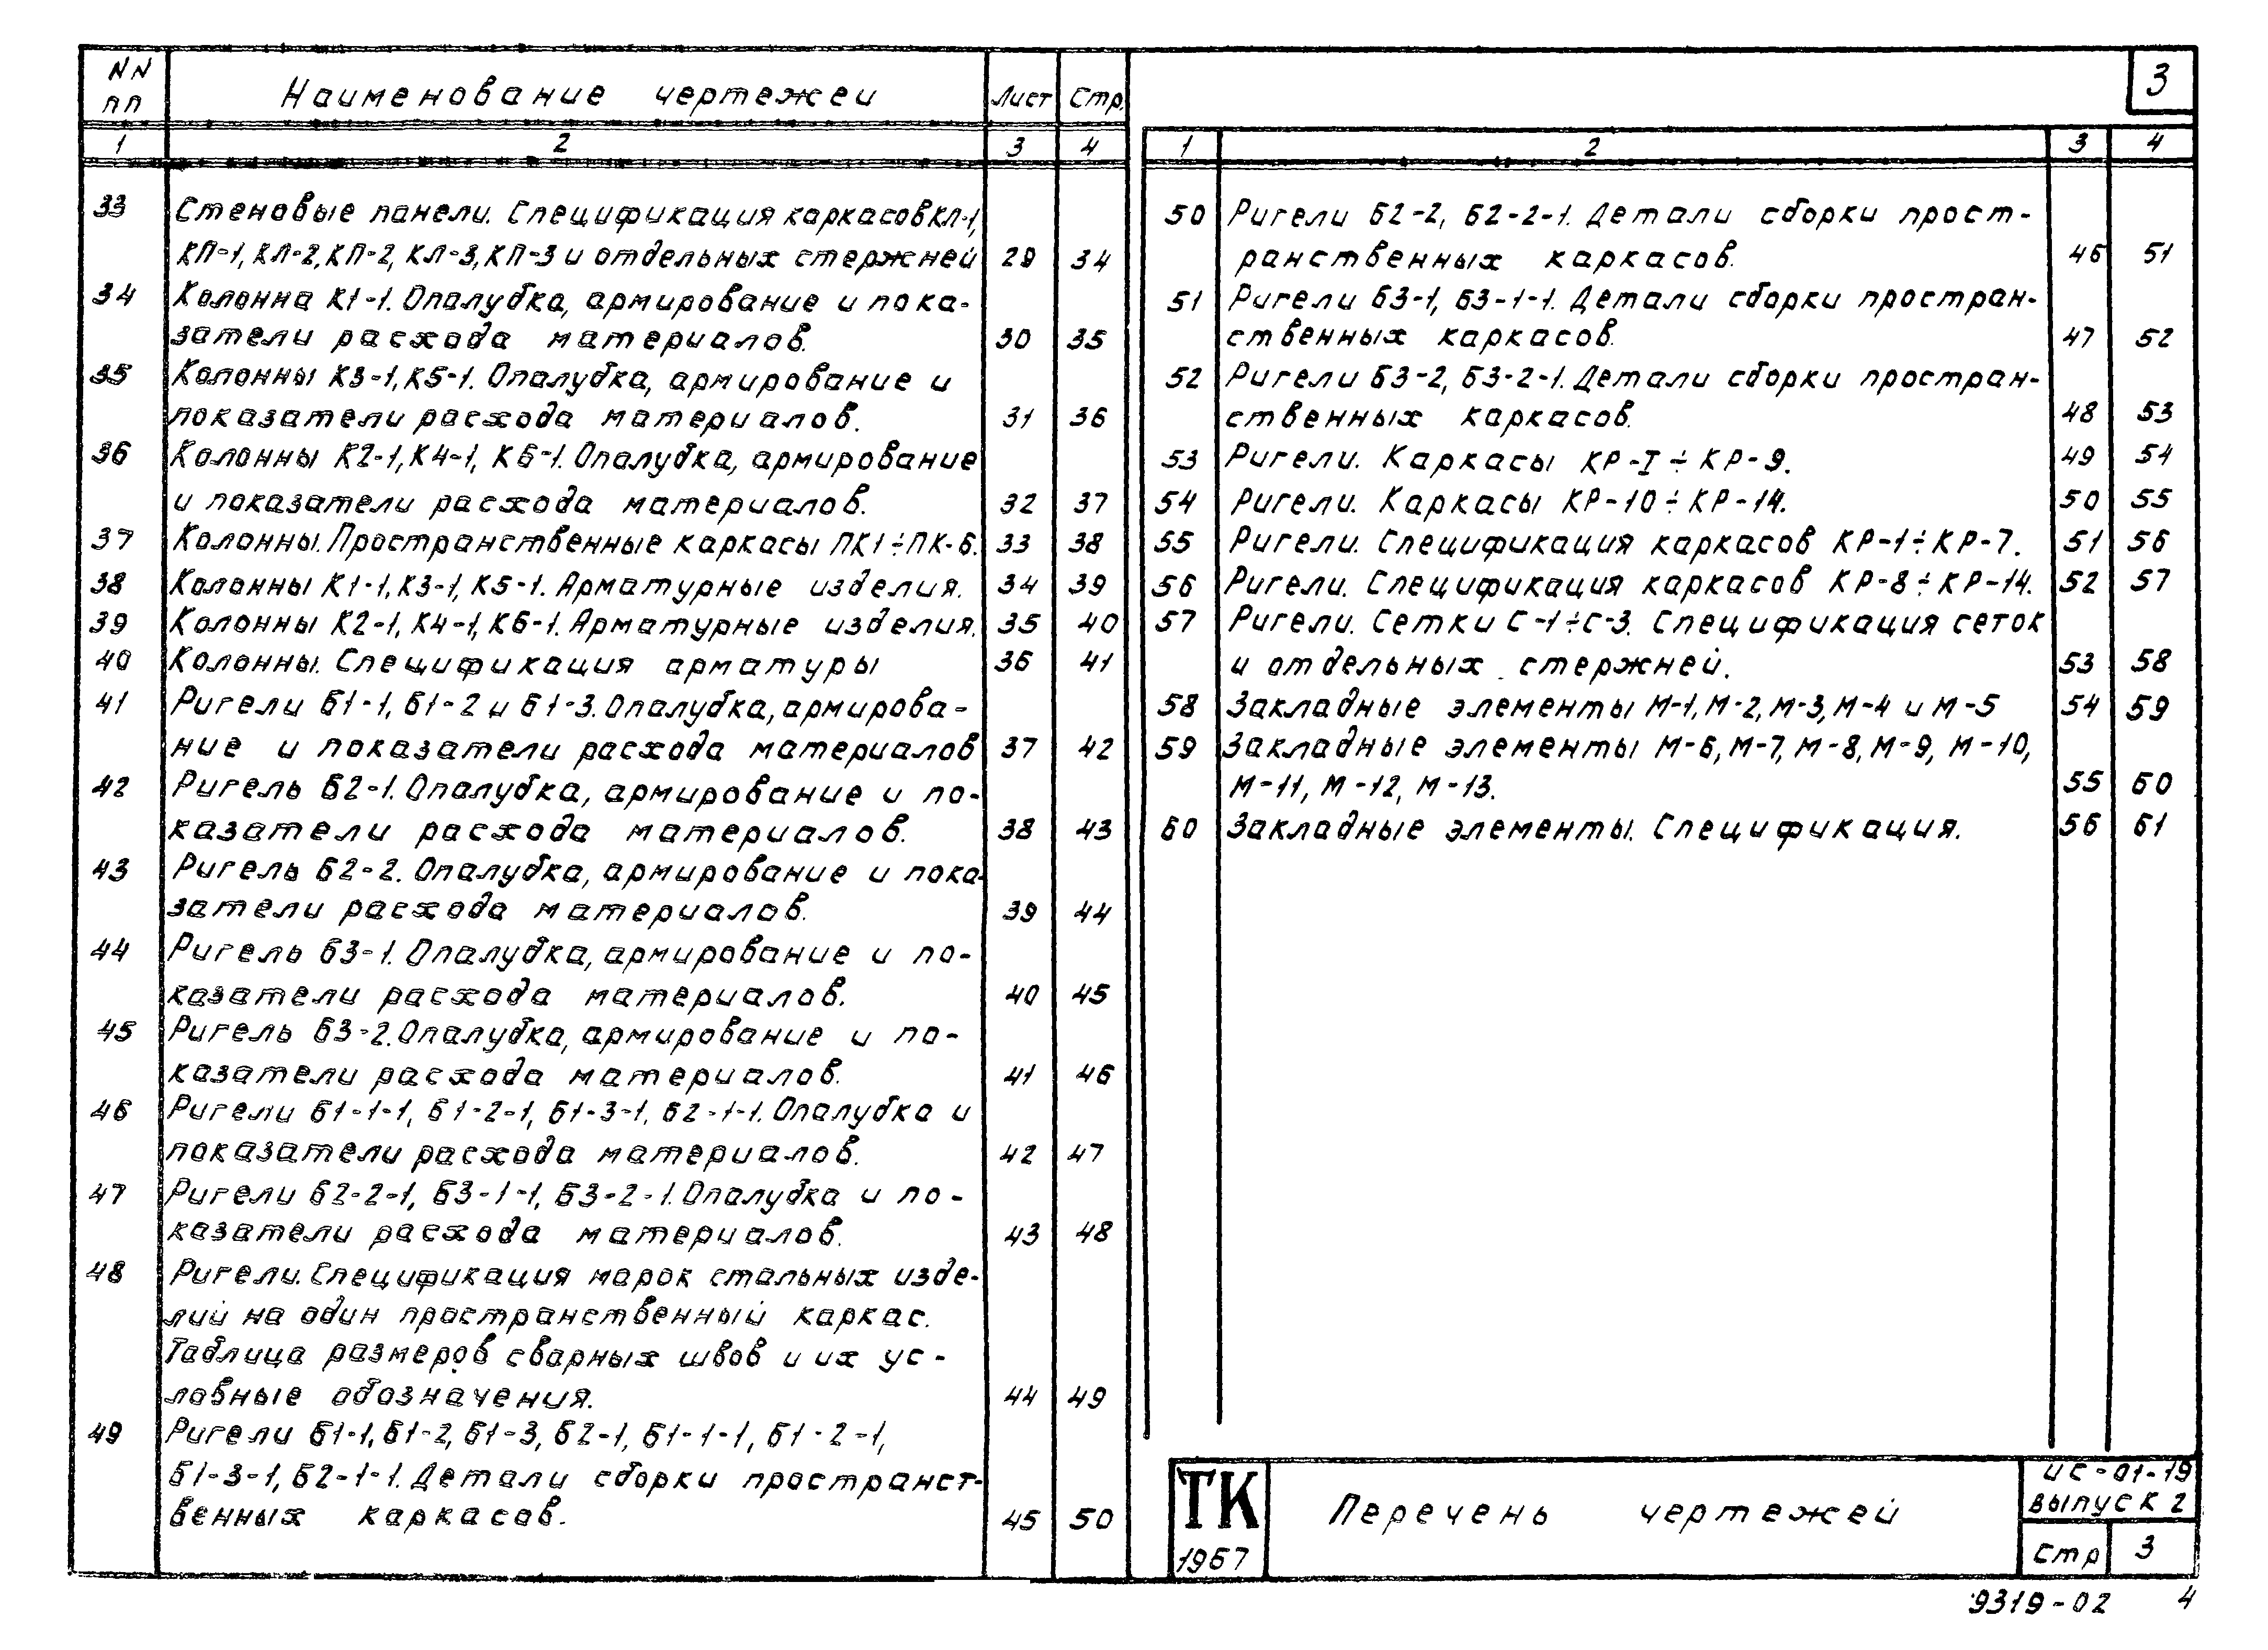 NN пп Наименование чертежей Лист Стр.
1 2 3 4
33 Стеновые панели. Спецификация каркасов КЛ-1,
КП-1, КЛ-2, КП-2, КЛ-3, КП-3 и отдельных стержней 29 34
34 Колонна К1-1. Опалубка, армирование и пока-
затели расхода материалов. 30 35
35 Колонны К3-1, К5-1. Опалубка, армирование и
показатели расхода материалов. 31 36
36 Колонны К2-1, К4-1, К6-1. Опалубка, армирование
и показатели расхода материалов. 32 37
37 Колонны. Пространственные каркасы ПК1÷ПК-6. 33 38
38 Колонны К1-1, К3-1, К5-1. Арматурные изделия. 34 39
39 Колонны К2-1, К4-1, К6-1. Арматурные изделия. 35 40
40 Колонны. Спецификация арматуры 36 41
41 Ригели Б1-1, Б1-2 и Б1-3. Опалубка, армирова-
ние и показатели расхода материалов 37 42
42 Ригель Б2-1. Опалубка, армирование и по-
казатели расхода материалов. 38 43
43 Ригель Б2-2. Опалубка, армирование и пока-
затели расхода материалов. 39 44
44 Ригель Б3-1. Опалубка, армирование и по-
казатели расхода материалов. 40 45
45 Ригель Б3-2. Опалубка, армирование и по-
казатели расхода материалов. 41 46
46 Ригели Б1-1-1, Б1-2-1, Б1-3-1, Б2-1-1. Опалубка и
показатели расхода материалов. 42 47
47 Ригели Б2-2-1, Б3-1-1, Б3-2-1. Опалубка и по-
казатели расхода материалов. 43 48
48 Ригели. Спецификация марок стальных изде-
лий на один пространственный каркас.
Таблица размеров сварных швов и их ус-
ловные обозначения. 44 49
49 Ригели Б1-1, Б1-2, Б1-3, Б2-1, Б1-1-1, Б1-2-1,
Б1-3-1, Б2-1-1. Детали сборки пространст-
венных каркасов. 45 50
3
1 2 3 4
50 Ригели Б2-2, Б2-2-1. Детали сборки прост-
ранственных каркасов. 46 51
51 Ригели Б3-1, Б3-1-1. Детали сборки простран-
ственных каркасов. 47 52
52 Ригели Б3-2, Б3-2-1. Детали сборки простран-
ственных каркасов. 48 53
53 Ригели. Каркасы КР-I÷КР-9. 49 54
54 Ригели. Каркасы КР-10÷КР-14. 50 55
55 Ригели. Спецификация каркасов КР-1÷КР-7. 51 56
56 Ригели. Спецификация каркасов КР-8÷КР-14. 52 57
57 Ригели. Сетки С-1÷С-3. Спецификация сеток
и отдельных стержней. 53 58
58 Закладные элементы М-1, М-2, М-3, М-4 и М-5 54 59
59 Закладные элементы М-6, М-7, М-8, М-9, М-10,
М-11, М-12, М-13. 55 60
60 Закладные элементы. Спецификация. 56 61
ТК
1967
Перечень чертежей
ИС-01-19
выпуск 2
стр 3
9319-02 4